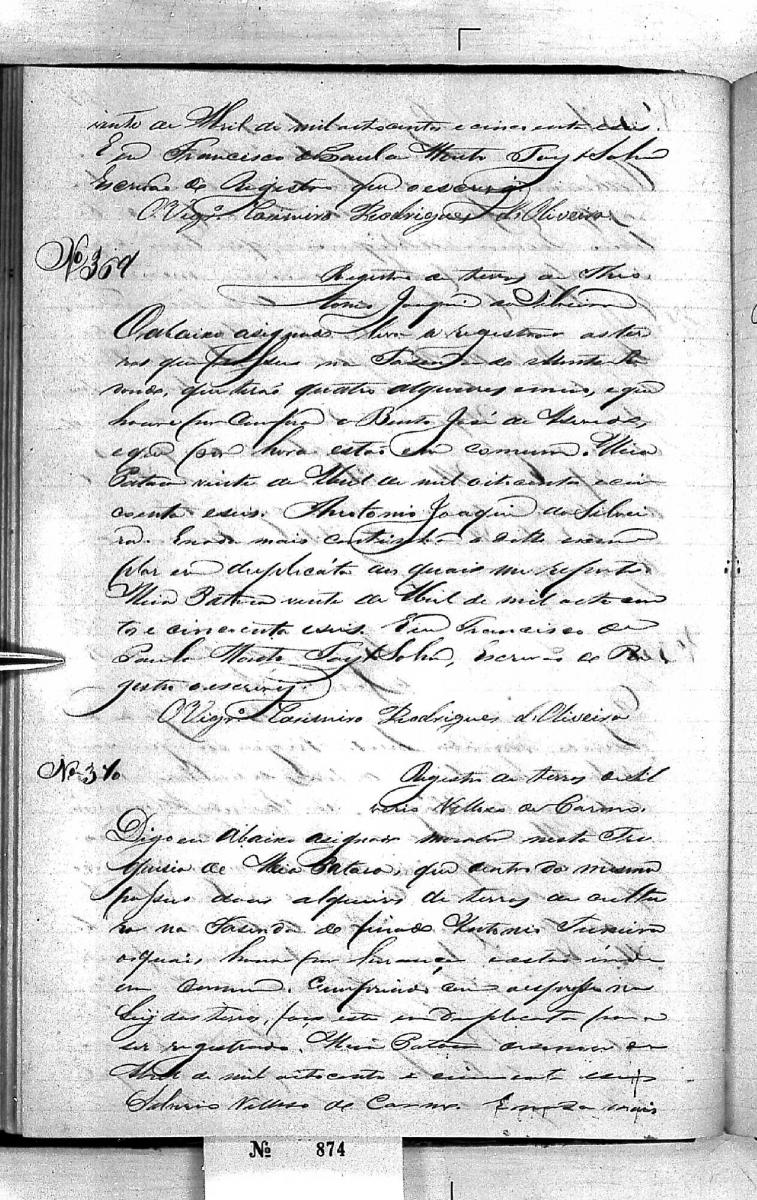 vinte de Abril de mil oitocentos e cincoenta e seis.
Eu Francisco de Paula Couto Solha
Escrivão de Registro que o escrevy
O Vigrº Casimiro Rodrigues d'Oliveira
No 369
Registro de terras de
tonio Joaquim da Silveira
O abaixo asignado leva a registrar as ter
ras que possue na Fazenda do
que terá quatro alqueires e meio, e que
houve por compra a Bento José de
e que por hora estão em comum. Meia
Pataca vinte de Abril de mil oitocentos e cin
coenta e seis. Antonio Joaquim da Silvei
ra. E nada mais continha o dito exem
plar em duplicata aos quais me reporto.
Meia Pataca vinte de Abril de mil oitocen
tos e cincoenta e seis. Eu Francisco de
Paula Couto Solha, Escrivão de Re
gistro o escrevy.
O Vigrº Casimiro Rodrigues d'Oliveira
No 370
Registro de terras de Sil
verio Velloso do Carmo.
Digo eu Abaixo asignado morador nesta Fre
guesia de Meia Pataca, que dentro do mesmo
possuo dous alqueires de terras de cultu
ras na Fazenda do finado Antonio
os quais houve por herança e estão inda
em comum. Cumprindo com o espresso na
Ley das terras, faço este em duplicata para
ser registrado. Meia Pataca de
Abril de mil oitocentos e cincoenta e seis
Silverio Velloso do Carmo. E nada mais
Nº 874